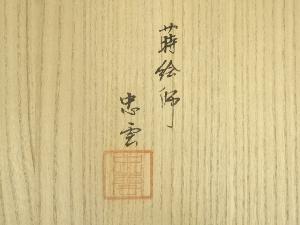 蒔絵師
忠雲